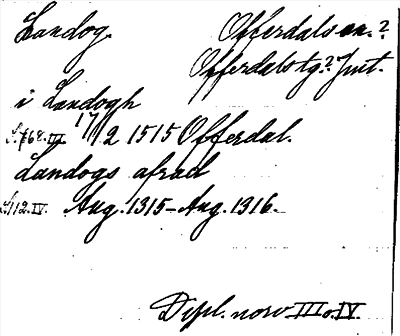 Landog. Offerdals sn.?
Offerdals tg.? Jmt.
i Landogh
S. 768. III. 17/12 1515 Offerdal.
Landogs afrad
S. 112. IV. Aug. 1315 - Aug. 1316.
Dipl. norv. III o. IV.